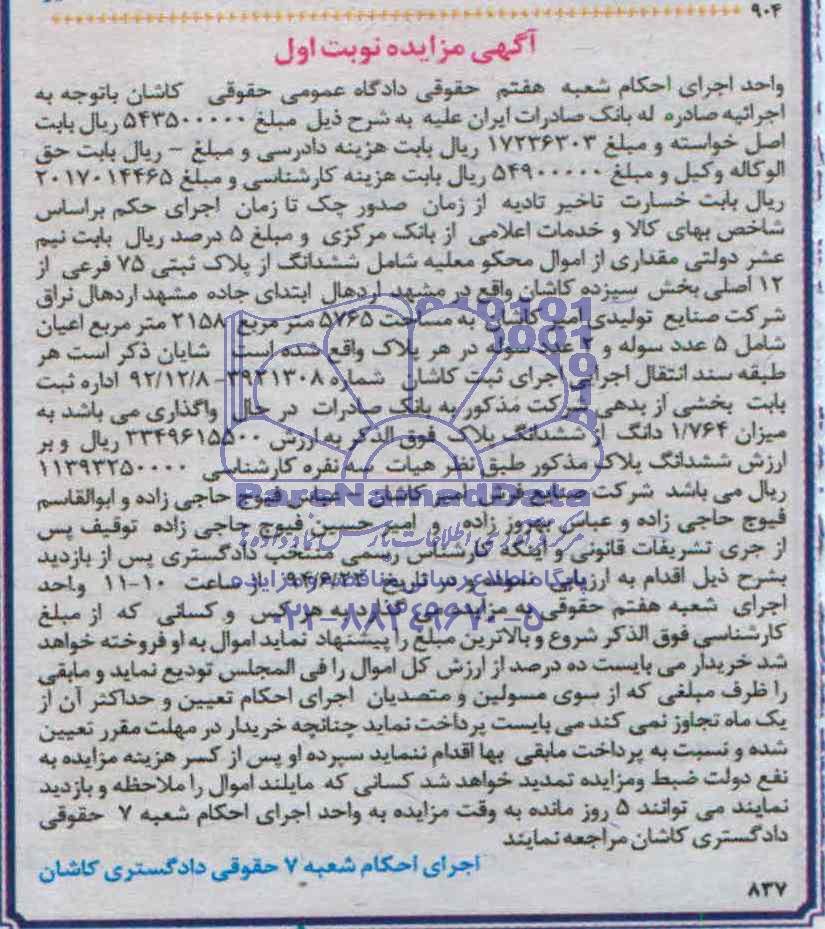 ۹۰۴
آگهی مزایده نوبت اول
واحد اجرای احکام شعبه هفتم حقوقی دادگاه عمومی حقوقی کاشان باتوجه به
اجرائیه صادره له بانک صادرات ایران علیه به شرح ذیل مبلغ ۵۴۳۵۰۰۰۰۰ ریال بابت
اصل خواسته و مبلغ ۱۷۲۳۶۳۰۳ ریال بابت هزینه دادرسی و مبلغ – ریال بابت حق
الوکاله وکیل و مبلغ ۵۴۹۰۰۰۰۰ ریال بابت هزینه کارشناسی و مبلغ ۲۰۱۷۰۱۴۴۶۵
ریال بابت خسارت تاخیر تادیه از زمان صدور چک تا زمان اجرای حکم براساس
شاخص بهای کالا و خدمات اعلامی از بانک مرکزی و مبلغ ۵ درصد ریال بابت نیم
عشر دولتی مقداری از اموال محکو معلیه شامل ششدانگ از پلاک ثبتی ۷۵ فرعی از
۱۲ اصلی بخش سیزده کاشان واقع در مشهد اردهال ابتدای جاده مشهد اردهال نراق
شرکت صنایع تولیدی امیر کاشان به مساحت ۵۷۶۵ متر مربع ۲۱۵۸ متر مربع اعیان
شامل ۵ عدد سوله و ۲ عدد سوله در هر پلاک واقع شده است شایان ذکر است هر
طبقه سند انتقال اجرایی اجرای ثبت کاشان شماره ۳۹۲۱۳۰۸- ۹۲/۱۲/۸ اداره ثبت
بابت بخشی از بدهی شرکت مذکور به بانک صادرات در حال واگذاری می باشد به
میزان ۱/۷۶۴ دانگ از ششدانگ پلاک فوق الذکر به ارزش ۳۳۴۹۶۱۵۵۰۰ ریال و بر
ارزش ششدانگ پلاک مذکور طبق نظر هیات سه نفره کارشناسی ۱۱۳۹۳۲۵۰۰۰۰
ریال می باشد شرکت صنایع فرش امیر کاشان – عباس فیوج حاجی زاده و ابوالقاسم
فیوج حاجی زاده و عباس بهروز زاده و امیر حسین فیوج حاجی زاده توقیف پس
از جری تشریفات قانونی و اینکه کارشناس رسمی منتخب دادگستری پس از بازدید
بشرح ذیل اقدام به ارزیابی نموده و در تاریخ ۹۴/۶/۲۴ از ساعت ۱۰-۱۱ واحد
اجرای شعبه هفتم حقوقی به مزایده می گذارد به هر کس و کسانی که از مبلغ
کارشناسی فوق الذکر شروع و بالاترین مبلغ را پیشنهاد نماید اموال به او فروخته خواهد
شد خریدار می بایست ده درصد از ارزش کل اموال را فی المجلس تودیع نماید و مابقی
را ظرف مبلغی که از سوی مسولین و متصدیان اجرای احکام تعیین و حداکثر آن از
یک ماه تجاوز نمی کند می بایست پرداخت نماید چنانچه خریدار در مهلت مقرر تعیین
شده و نسبت به پرداخت مابقی بها اقدام ننماید سپرده او پس از کسر هزینه مزایده به
نفع دولت ضبط ومزایده تمدید خواهد شد کسانی که مایلند اموال را ملاحظه و بازدید
نمایند می توانند ۵ روز مانده به وقت مزایده به واحد اجرای احکام شعبه ۷ حقوقی
دادگستری کاشان مراجعه نمایند
اجرای احکام شعبه ۷ حقوقی دادگستری کاشان
۸۳۷
ParsNamadData
پایگاه اطلاع رسانی مناقصه و مزایده
۰۲۱-۸۸۳۴۹۶۷۰-۵